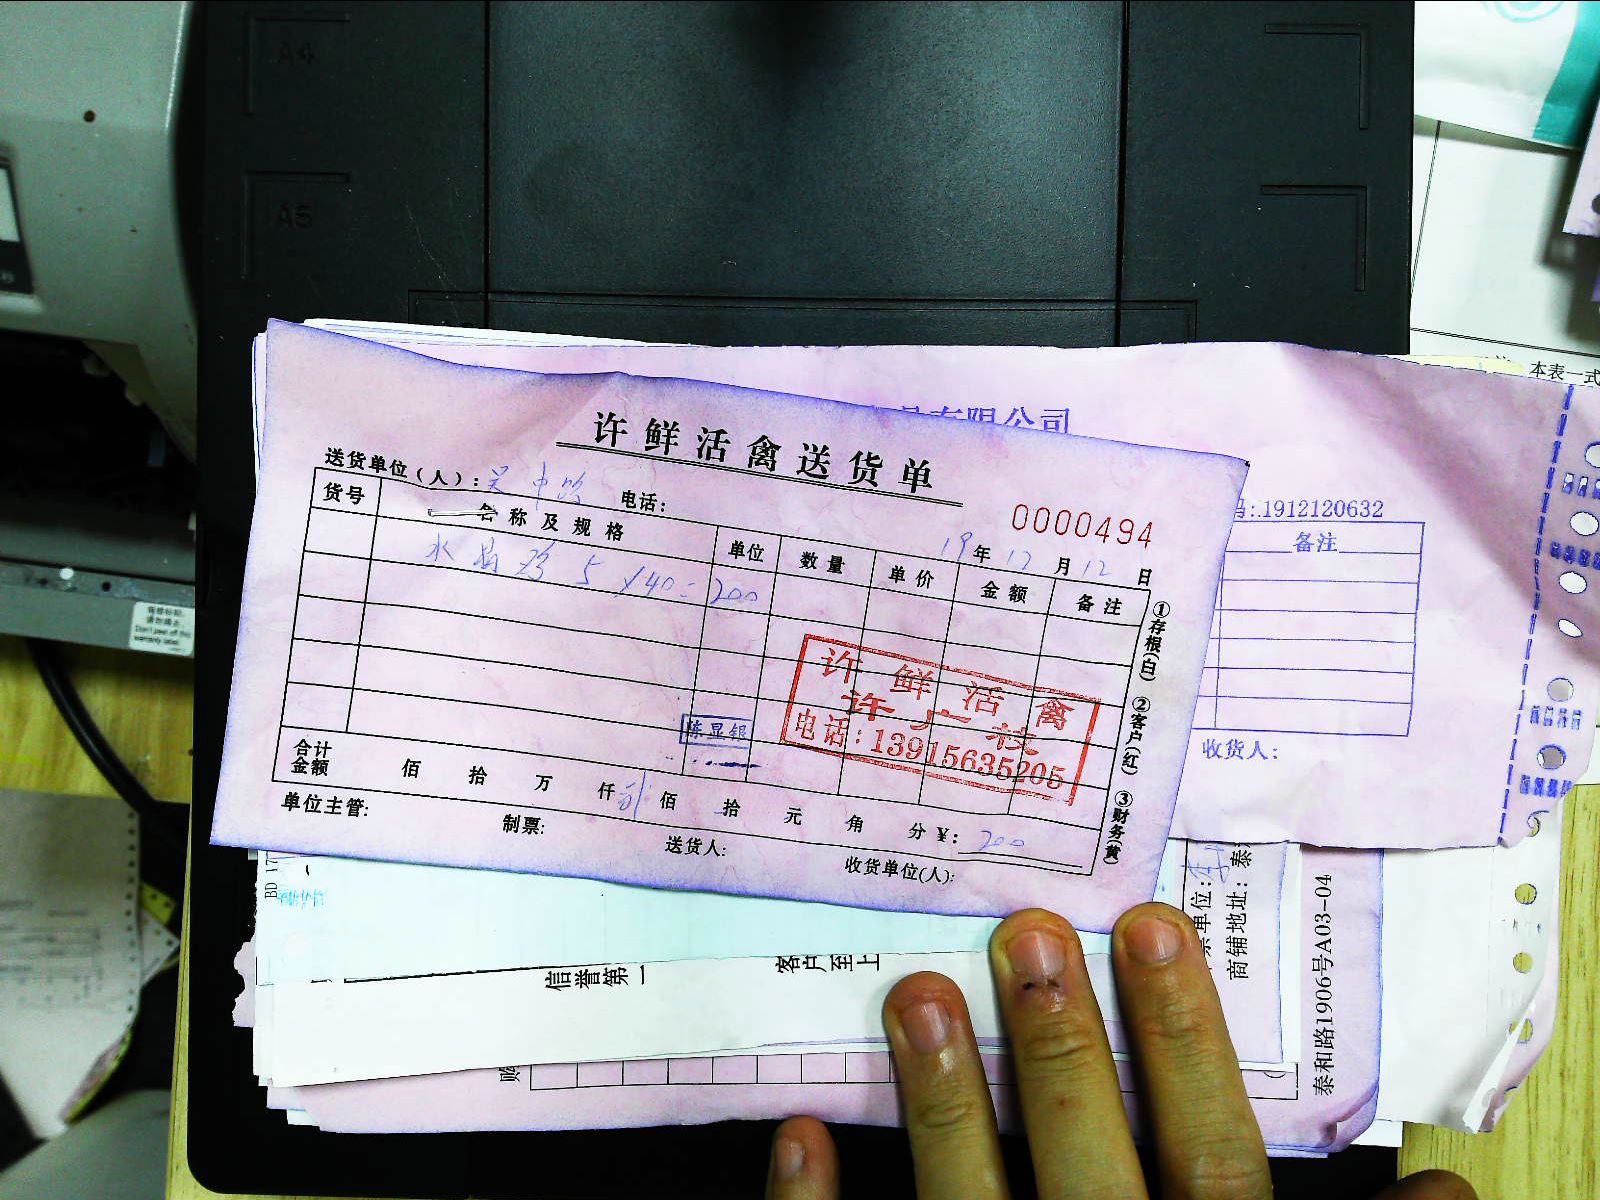 A4
A5
本表一式
有限公司
许鲜活禽送货单
送货单位(人):吴中路 电话:
0000494
19年12月12日
:1912120632
货号 名称及规格 单位 数量 单价 金额 备注
备注
5×40=200
①存根(白) ②客户(红) ③财务(黄)
许鲜活禽
电话:13915635205
陈显银
收货人:
合计金额 佰 拾 万 仟 佰 拾 元 角 分 ¥:200
单位主管: 制票: 送货人: 收货单位(人):
Don't peel off this
warranty label.
BD 17
信誉第一 客户至上
单位:
商铺地址:泰
泰和路1906号A03-04
购